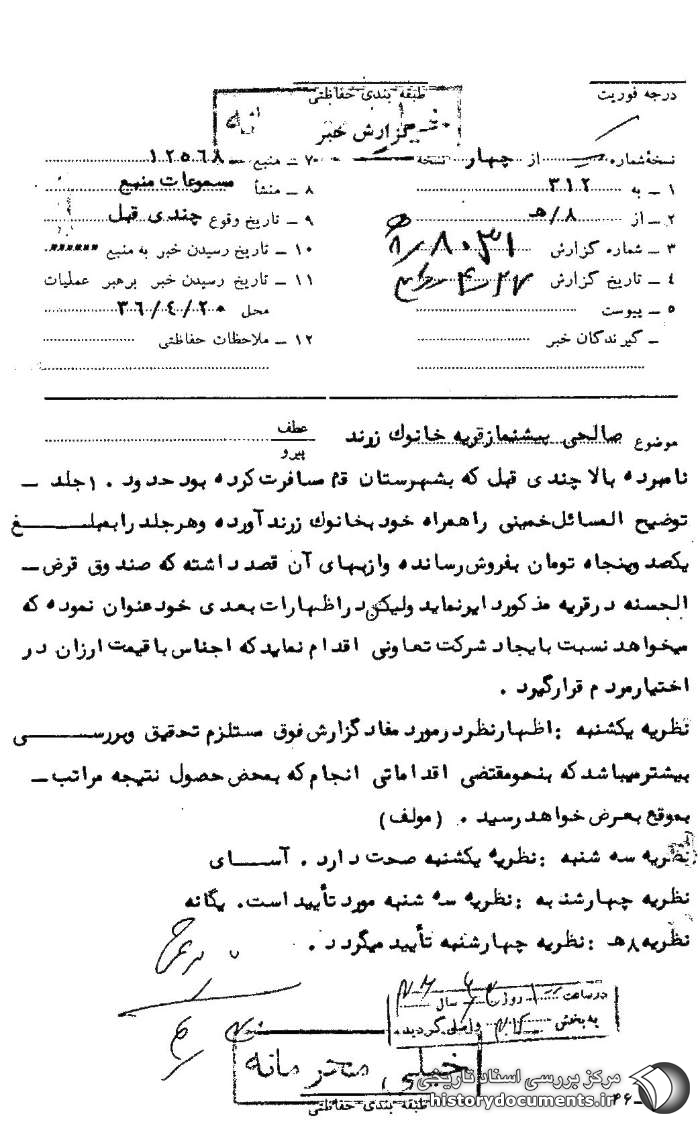 درجه فوریت
طبقه بندی حفاظتی
گزارش خبر
نسخهٔ شماره از چهار نسخه
۱ ـ به ۳۱۲
۲ ـ از ۸/هـ
۳ ـ شماره گزارش ۸۰۳۱
۴ ـ تاریخ گزارش
۵ ـ پیوست
ـ گیرندگان خبر
۷ ـ منبع ۱۲۵۶۸
۸ ـ منشأ مسموعات منبع
۹ ـ تاریخ وقوع چندی قبل
۱۰ ـ تاریخ رسیدن خبر به منبع
۱۱ ـ تاریخ رسیدن خبر برهبر عملیات
محل ۳۶/۴/۲۰
۱۲ ـ ملاحظات حفاظتی
موضوع صالحی پیشنماز قریه خانوک زرند
عطف
پیرو
نامبرده بالا چندی قبل که بشهرستان قم مسافرت کرده بود حدود ۱۰ جلد ـ
توضیح المسائل خمینی را همراه خود بخانوک زرند آورده و هر جلد را بمبلغ
یکصد و پنجاه تومان بفروش رسانده و از بهای آن قصد داشته که صندوق قرض ـ
الحسنه در قریه مذکور دایر نماید ولیکن در اظهارات بعدی خود عنوان نموده که
میخواهد نسبت بایجاد شرکت تعاونی اقدام نماید که اجناس با قیمت ارزان در
اختیار مردم قرار گیرد .
نظریه یکشنبه : اظهار نظر در مورد مفاد گزارش فوق مستلزم تحقیق و بررسی
بیشتر میباشد که بنحو مقتضی اقداماتی انجام که بمحض حصول نتیجه مراتب ـ
بموقع بعرض خواهد رسید . (مولف)
نظریه سه شنبه : نظریه یکشنبه صحت دارد . آسای
نظریه چهارشنبه : نظریه سه شنبه مورد تأیید است. یگانه
نظریه ۸هـ : نظریه چهارشنبه تأیید میگردد .
در ساعت روز سال
به بخش واصل گردید.
خیلی محرمانه
طبقه بندی حفاظتی
مرکز بررسی اسناد تاریخی
historydocuments.ir